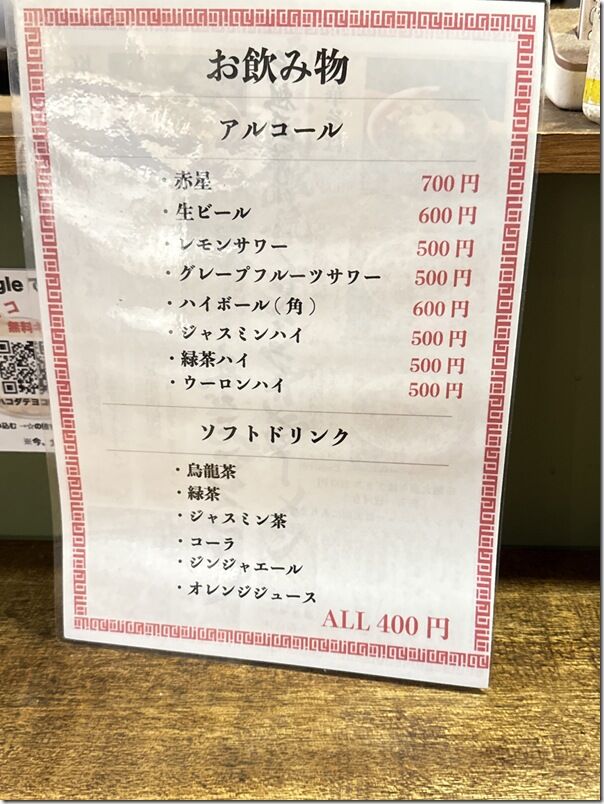 お飲み物
アルコール
・赤星 700円
・生ビール 600円
・レモンサワー 500円
・グレープフルーツサワー 500円
・ハイボール(角) 600円
・ジャスミンハイ 500円
・緑茶ハイ 500円
・ウーロンハイ 500円
ソフトドリンク
・烏龍茶
・緑茶
・ジャスミン茶
・コーラ
・ジンジャエール
・オレンジジュース
ALL 400円
gle で
コ
無料
ハコダテヨコ
込む →☆の
※今、